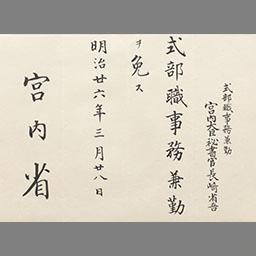 式部職事務兼勤
宮内大臣秘書官長崎省吾
式部職事務兼勤
ヲ免ス
明治廿六年三月廿八日
宮内省